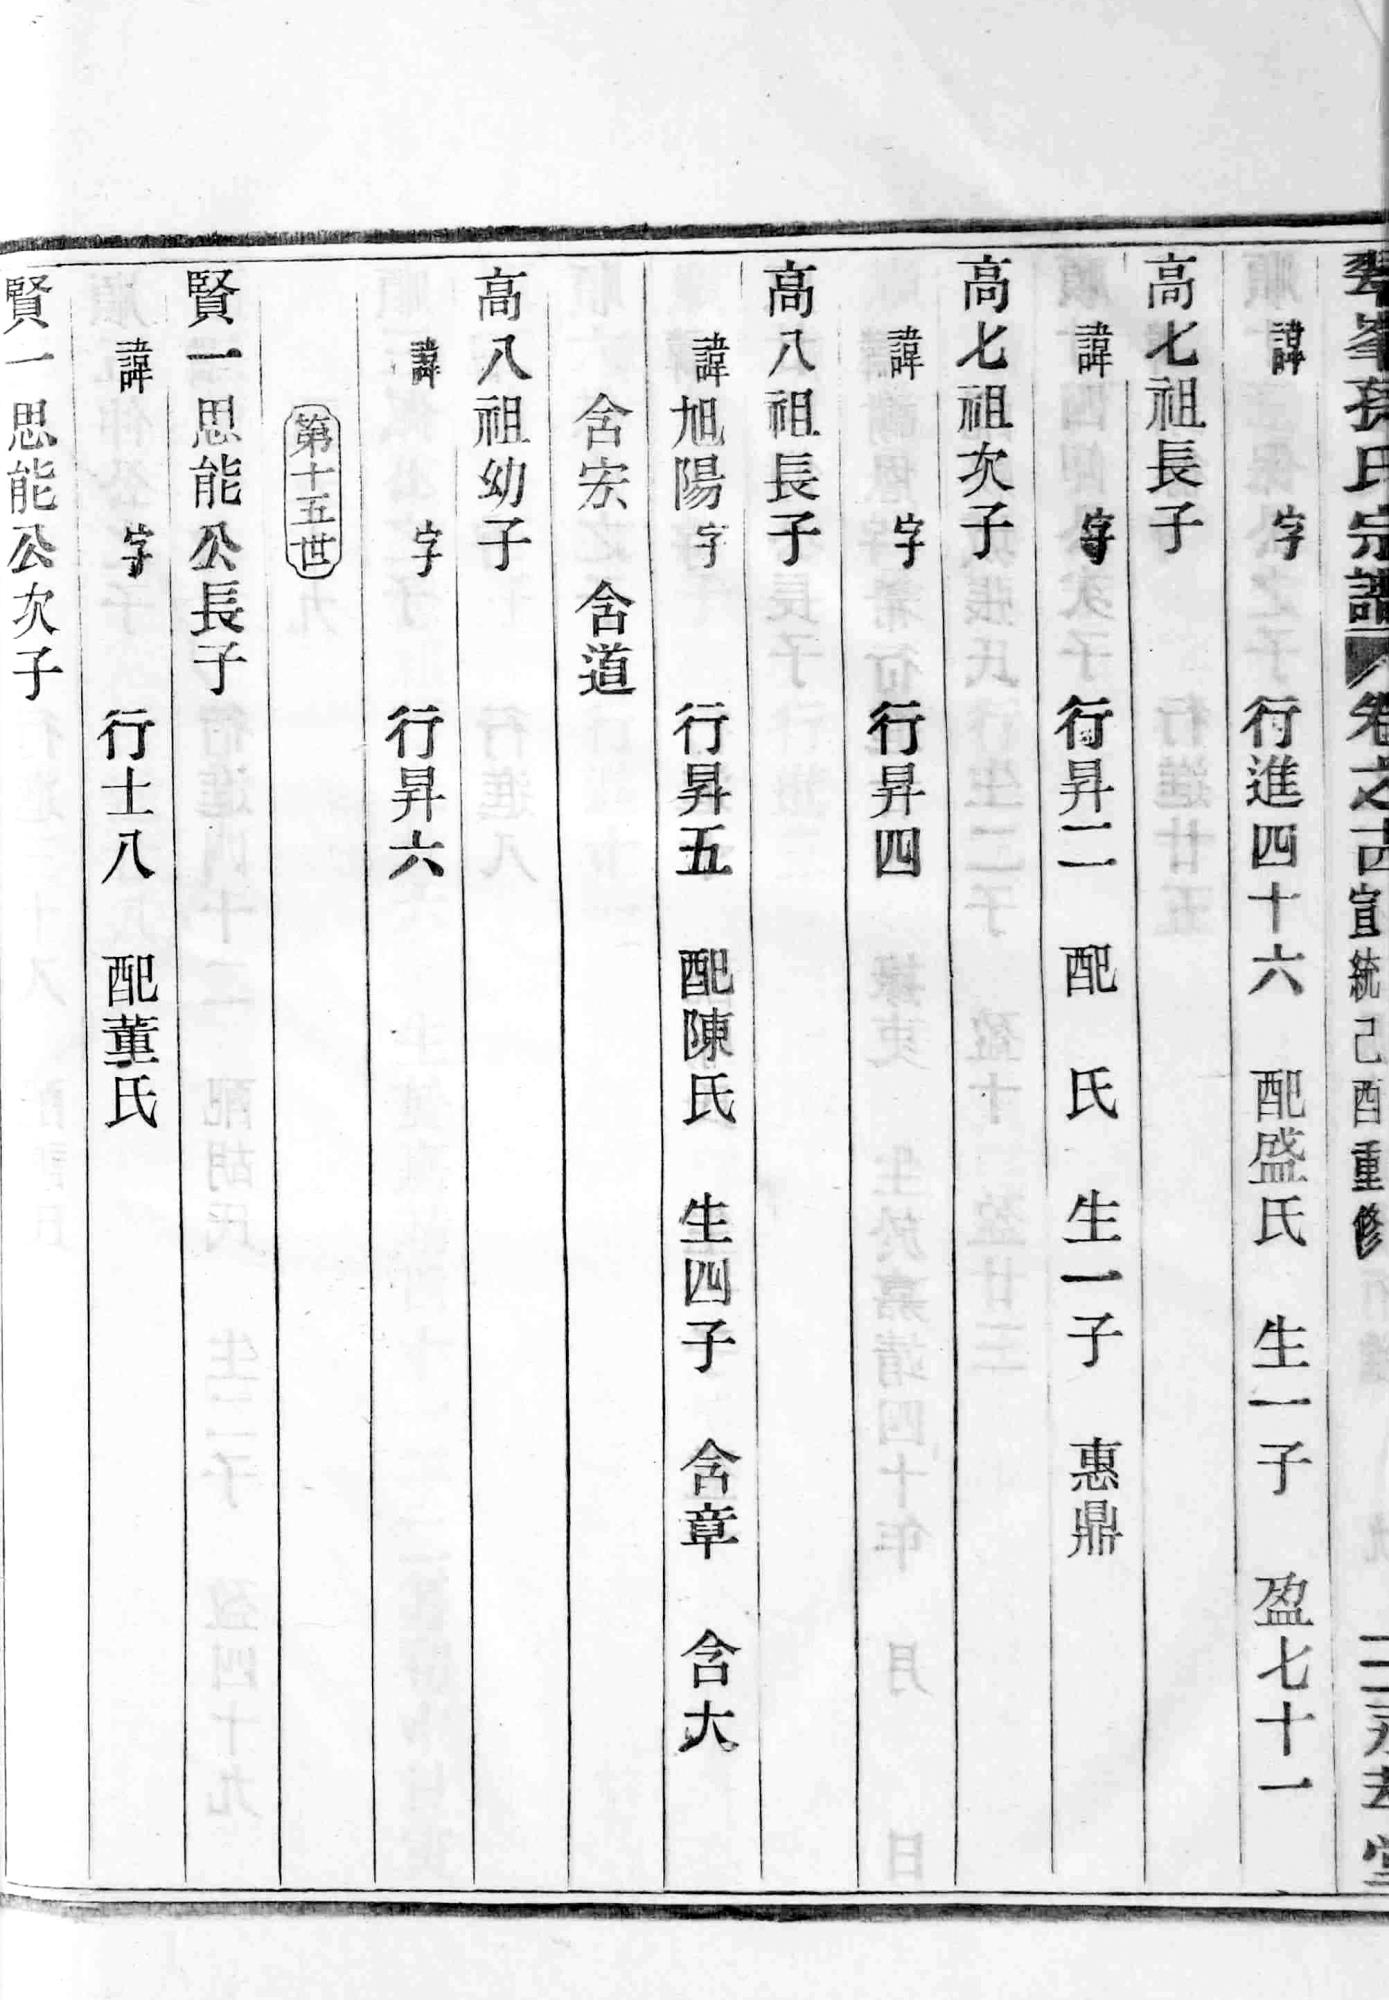 峯孫氏宗譜 卷之 宣統己酉重修 堂
諱 字 行進四十六 配盛氏 生一子 盈七十一
高七祖長子
諱 字 行昇二 配 氏 生一子 惠鼎
高七祖次子
諱 字 行昇四
高八祖長子
諱旭陽字 行昇五 配陳氏 生四子 含章 含大
含宏 含道
高八祖幼子
諱 字 行昇六
第十五世
賢一思能公長子
諱 字 行士八 配董氏
賢一思能公次子